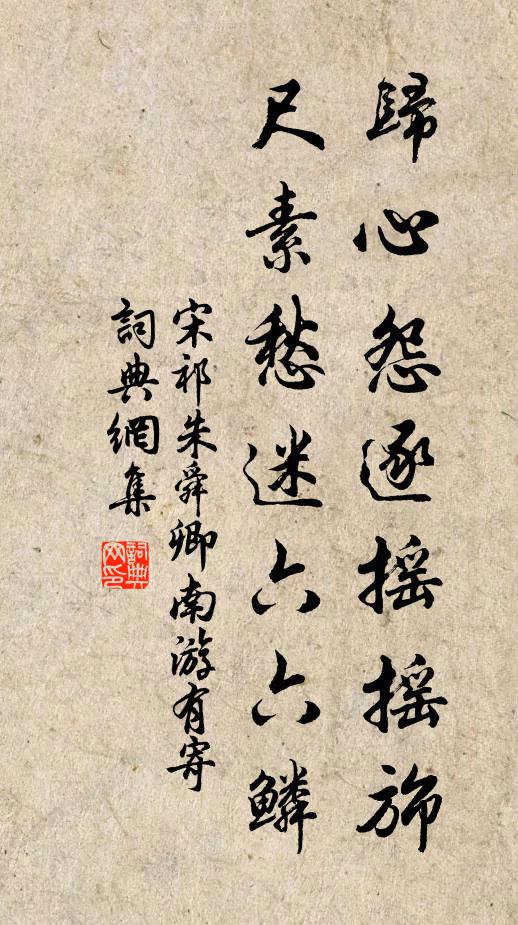 歸心怨逐摇摇旆
尺素愁迷六六鱗
宋祁朱舜卿南游有寄
詞典網集
詞典網印